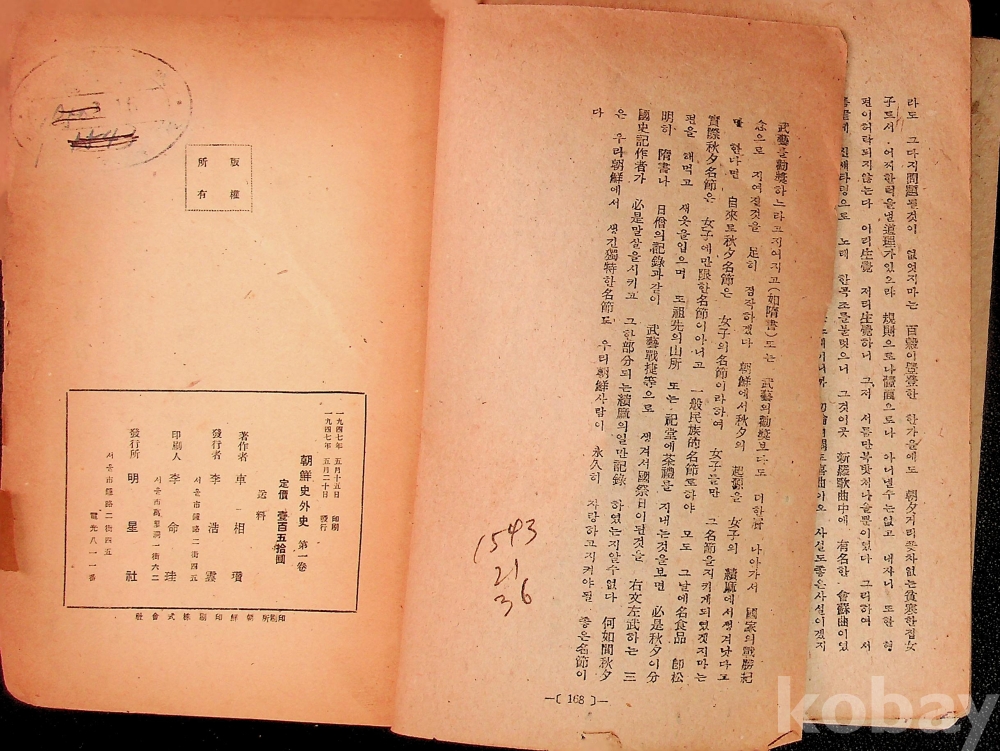 라도 그다지問題될것이 없엇지마는
子로서 어찌한력을낼道理가있으랴 規則으로나體面으로나 아니낼수는없고 내자니 또한 형
편이허락되지않는다 이리生覺 저리生覺하니 그저 서름만복밧처나올뿐이었다 그리하여 서
노래 한곡조를불럿으니 그것이곳 新羅歌曲中에 有名한 會蘇曲이었
武藝를勸奬하느라고지여지고(如隋書)또는 武藝의勸奬보다도 더한層 나아가서 國家의戰勝紀
念으로 지여진것을 足히 짐작하겠다 朝鮮에서秋夕의 起源을 女子의 績麻에서생겨낫다고
만 한다면 自來로秋夕名節은 女子의名節이라하여 女子들만 그名節을지키게되였겠지마는
實際秋夕名節은 女子에만限한名節이아니고 一般民族的名節로하야 모도 그날에名食品 卽松
편을 해먹고 새옷을입으며 또祖先의山所 또는 祀堂에茶禮를 지내는것을보면 必是秋夕이分
明히 隋書나 日僧의記錄과같이 武藝戰捷等으로 생겨서國祭日이된것을 右文左武하는 三
國史記作者가 必是말살을시키고 그한部分되는績麻의일만記錄 하였는지알수없다 何如間秋夕
은 우리朝鮮에서 생긴獨特한名節도 우리朝鮮사람이 永久히 자랑하고지켜야될 좋은名節이
다
—〔 168 〕—
1543
21
36
版權
所有
一九四七年 五月十五日 印刷
一九四七年 五月二十日 發行
朝鮮史外史 第一卷
定價 壹百五拾圓
送料
著作者 車相瓚
서울市鍾路二街四五
發行者 李浩雲
印刷人 李命珪
發行所 明星社
서울市鍾路二街四五
電光八一一番
印刷所朝鮮印刷株式會社
kobay